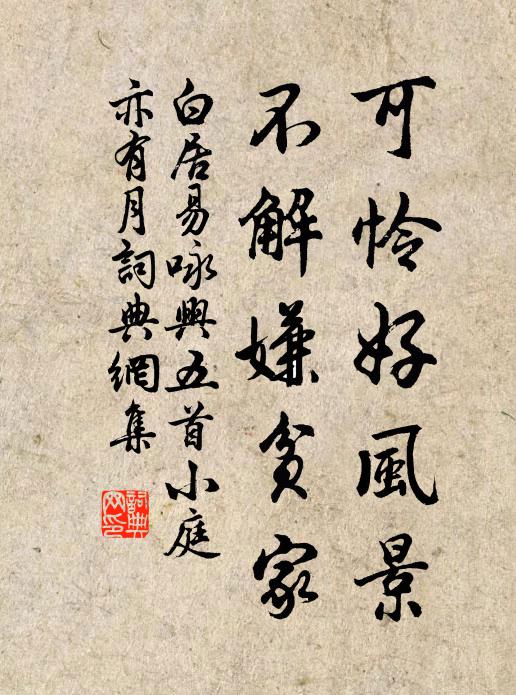 可怜好風景
不解嫌貧家
白居易咏興五首小庭
亦有月詞典網集
詞典
网印